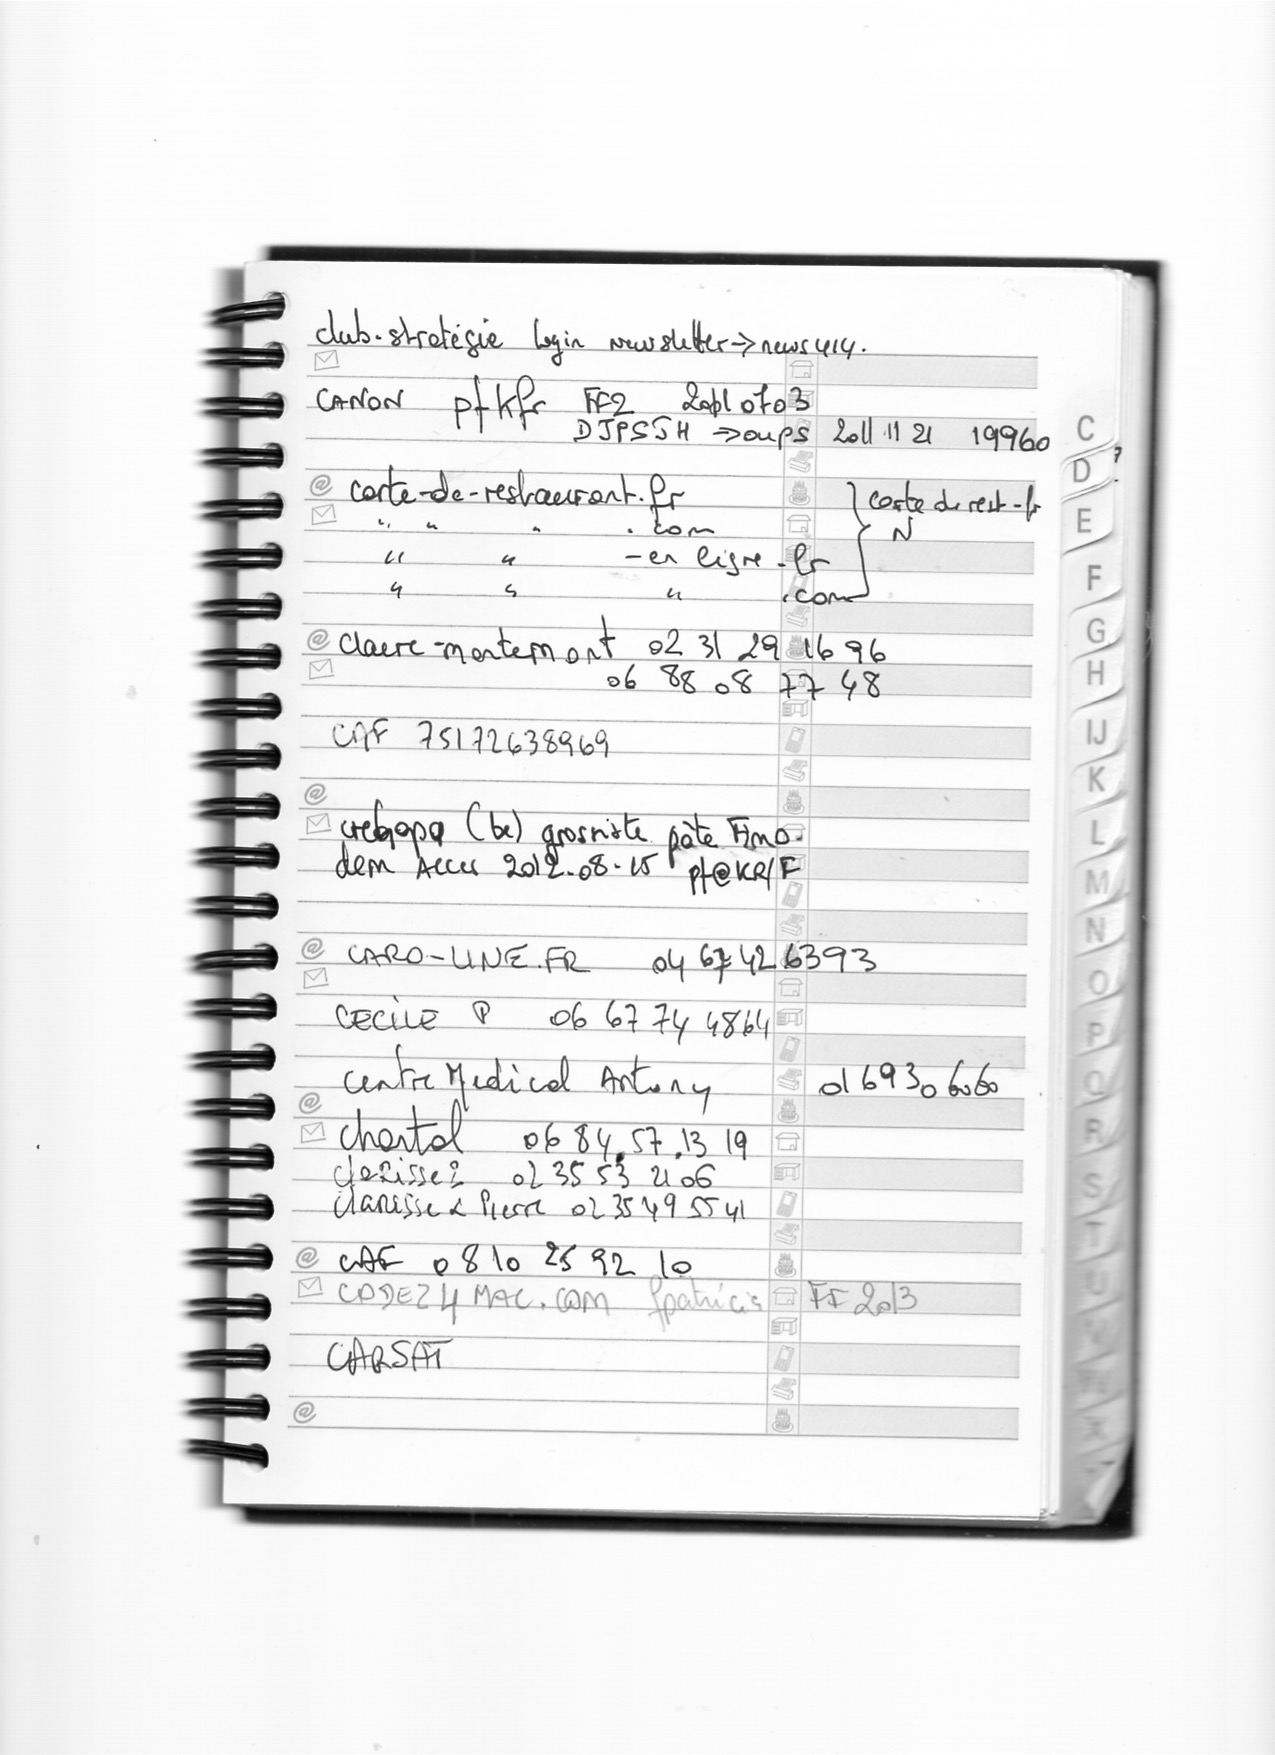 club-stratégie login newsletter → news414.
CANON pfkfr FF2 20110703
DJPSJH → oups 2011 11 21 19960
carte-de-restaurant.fr } carte de rest-fr
" " " .com N
" " -en ligne.fr
" " " .com
claire-montemont 02 31 29 16 96
06 88 08 77 48
CAF 75172638969
creapapa (be) grossiste pâte Fimo
dem Accu 2012-08-15 pf@KR/F
CARO-LINE.FR 04 67 42 6393
CECILE P 06 67 74 4864
Centre Medical Antony 01 69 30 60 60
Chantal 06 84.57.13 19
clarisse 2 02 35 53 21 06
clarisse & Pierre 02 35 49 55 41
CAF 0810 25 92 10
CODE24MAC.COM fpatricis FF 2013
CARSAT
C
D
E
F
G
H
IJ
K
L
M
N
O
P
Q
R
S
T
U
V
W
X